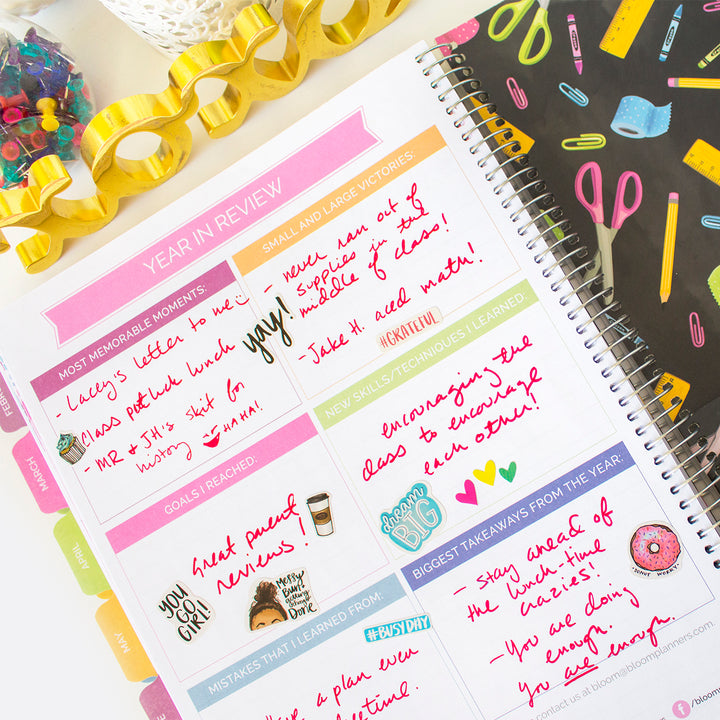 YEAR IN REVIEW
MOST MEMORABLE MOMENTS:
- Lacey's letter to me
Class potluck lunch
- MR & JH's skit for
history HAHA!
SMALL AND LARGE VICTORIES:
- never ran out of
supplies in the
middle of class!
- Jake H. aced math!
yay!
#GRATEFUL
GOALS I REACHED:
Great parent
reviews!
YOU
GO,
GIRL!
MESSY
BUN &
getting
things
DONE
NEW SKILLS/TECHNIQUES I LEARNED:
encouraging the
class to encourage
each other!
dream
BIG
MISTAKES THAT I LEARNED FROM:
#BUSY DAY
a plan even
BIGGEST TAKEAWAYS FROM THE YEAR:
- Stay ahead of
the lunch-time
crazies!
- You are doing
enough.
You are enough.
DONUT WORRY
contact us at bloom@bloomplanners.com
f
MARCH
APRIL
MAY